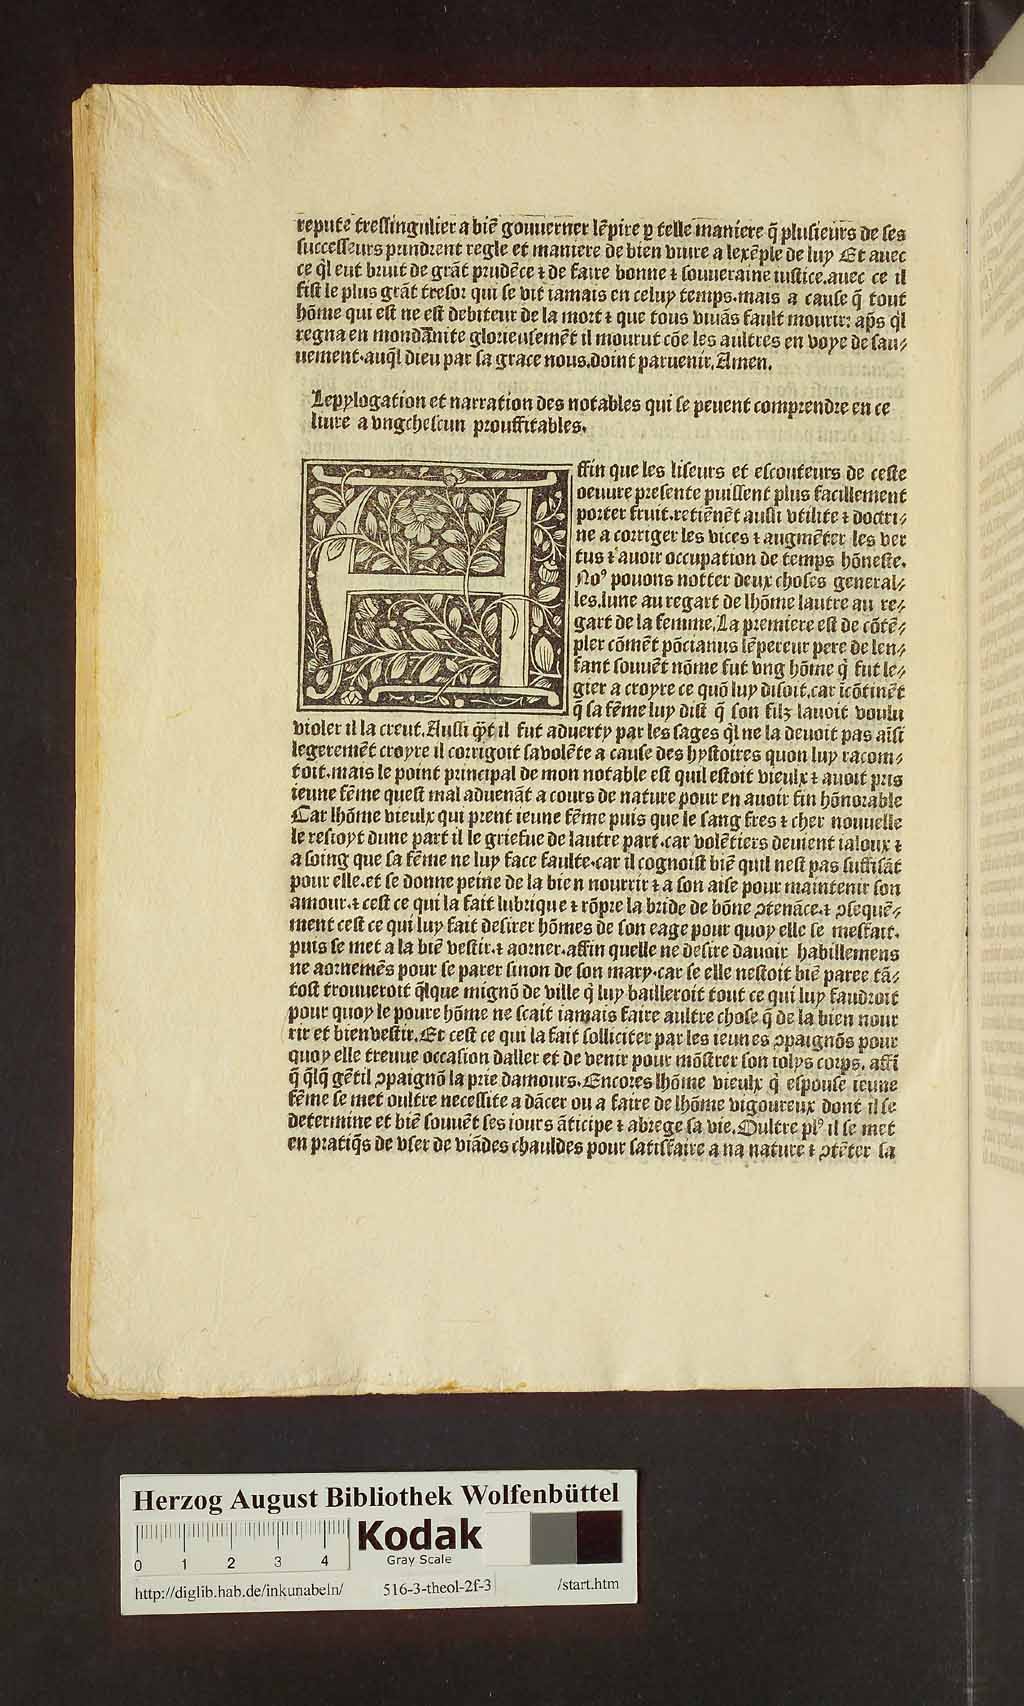 repute tressingulier a biē gouuerner lēpire ꝑ telle maniere q̄ plusieurs de ses
successeurs prindrent regle et maniere de bien viure a lexēple de luy Et auec
ce ql̄ eut bruit de grāt prudēce ⁊ de faire bonne ⁊ souueraine iustice.auec ce il
fist le plus grāt tresor qui se vit iamais en celuy temps.mais a cause q̄ tout
hōme qui est ne est debiteur de la mort ⁊ que tous viuās fault mourir: ap̄s ql̄
regna en mondānite glorieusemēt il mourut cōe les aultres en voye de sau⸗
uement.auql̄ dieu par sa grace nous.doint paruenir.Amen.
Lepylogation et narration des notables qui se peuent comprendre en ce
liure a vngchescun prouffitables.
Affin que les liseurs et escouteurs de ceste
oeuure presente puissent plus facillement
porter fruit.retiēnēt aussi vtilite ⁊ doctri⸗
ne a corriger les vices ⁊ augmēter les ver
tus ⁊ auoir occupation de temps hōneste.
Noꝰ pouons notter deux choses general⸗
les.lune au regart de lhōme lautre au re⸗
gart de la femme.La premiere est de cōtē⸗
pler cōmēt pōcianus lēpereur pere de len⸗
fant souuēt nōme fut vng hōme q̇ fut le⸗
gier a croyre ce quō luy disoit.car icōtinēt
q̄ sa fēme luy dist q̄ son filz lauoit voulu
violer il la creut.Aussi qn̄t il fut aduerty par les sages ql̄ ne la deuoit pas aīsi
legeremēt croyre il corrigoit savolēte a cause des hystoires quon luy racom⸗
toit.mais le point principal de mon notable est quil estoit vieulx ⁊ auoit pris
ieune fēme quest mal aduenāt a cours de nature pour en auoir fin hōnorable
Car lhōme vieulx qui prent ieune fēme puis que le sang fres ⁊ cher nouuelle
le resioyt dune part il le griefue de lautre part.car volētiers deuient ialoux ⁊
a soing que sa fēme ne luy face faulte.car il cognoist biē quil nest pas suffisāt
pour elle.et se donne peine de la bien nourrir ⁊ a son aise pour maintenir son
amour.⁊ cest ce qui la fait lubrique ⁊ rōpre la bride de bōne ꝯtenāce.⁊ ꝯsequē⸗
ment cest ce qui luy fait desirer hōmes de son eage pour quoy elle se mesfait.
puis se met a la biē vestir.⁊ aorner.affin quelle ne desire dauoir habillemens
ne aornemēs pour se parer sinon de son mary.car se elle nestoit biē paree tā⸗
tost trouueroit q̄lque mignō de ville q̇ luy bailleroit tout ce qui luy faudroit
pour quoy le poure hōme ne scait iamais faire aultre chose q̄ de la bien nour
rir et bienvestir.Et cest ce qui la fait solliciter par les ieunes ꝯpaignōs pour
quoy elle treuue occasion daller et de venir pour mōstrer son iolys corps. affī
q̄ q̄lq̄ gētil ꝯpaignō la prie damours.Encores lhōme vieulx q̇ espouse ieune
fēme se met oultre necessite a dācer ou a faire de lhōme vigoureux dont il se
determine et biē souuēt ses iours āticipe ⁊ abrege sa vie.Oultre plꝰ il se met
en pratiq̄s de vser de viādes chauldes pour satisfaire a na nature ⁊ ꝯtēter sa
Herzog August Bibliothek Wolfenbüttel
0 1 2 3 4
Kodak
Gray Scale
http://diglib.hab.de/inkunabeln/ 516-3-theol-2f-3 /start.htm